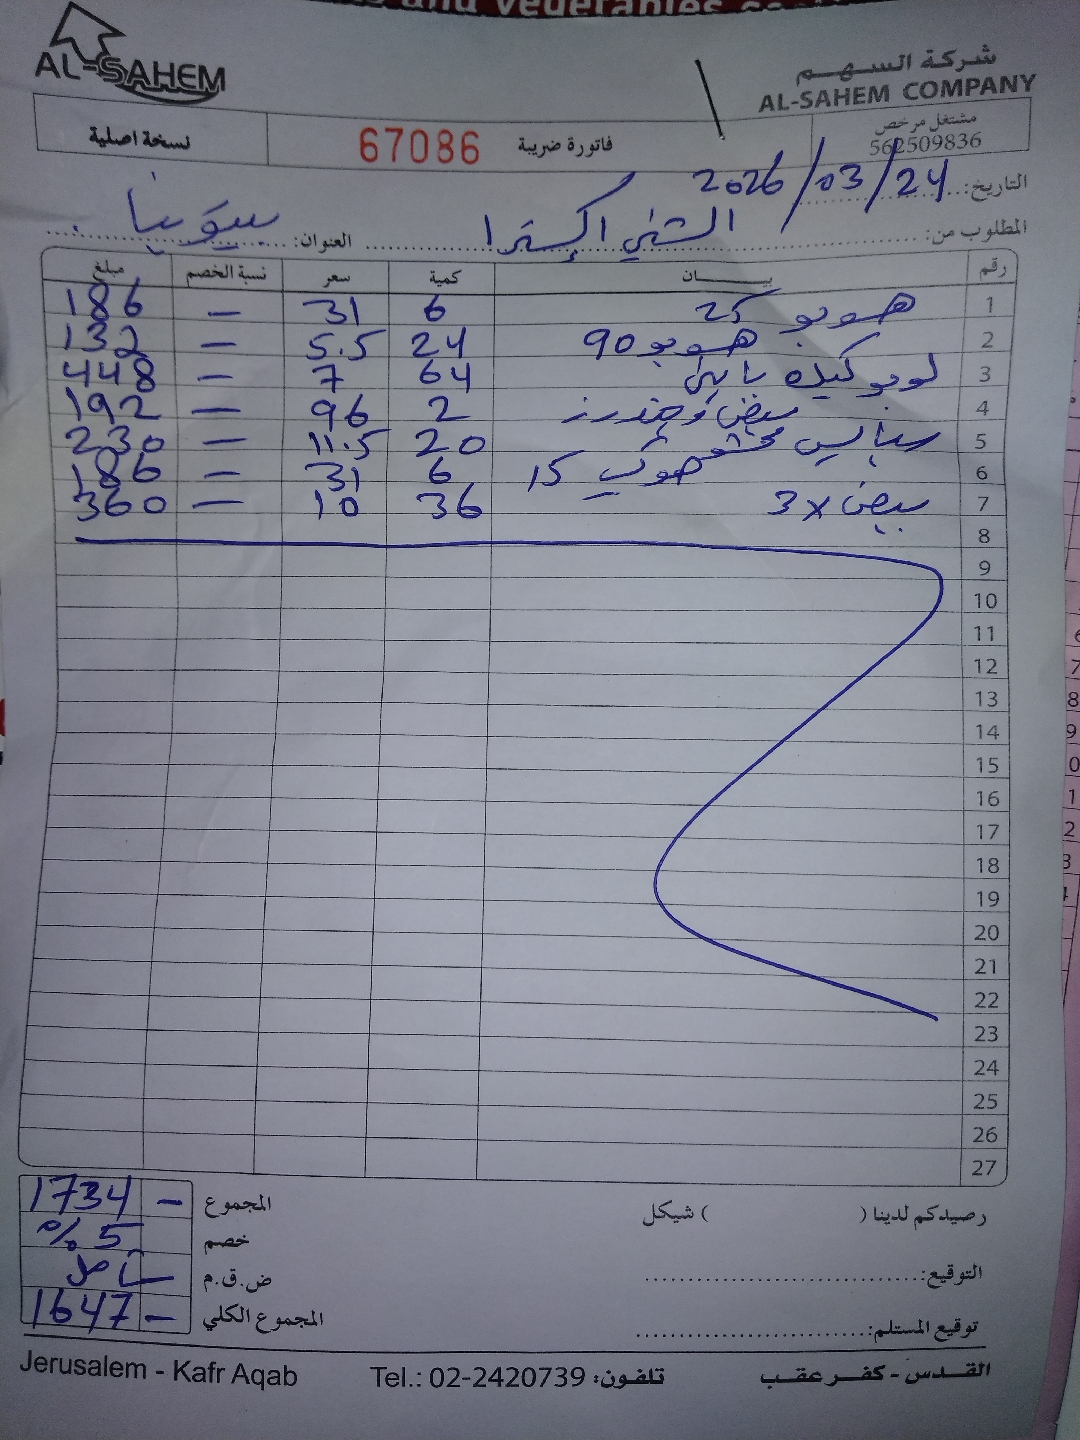 and vegetables
AL-SAHEM
شركة السهم
AL-SAHEM COMPANY
مشتغل مرخص
562509836
فاتورة ضريبة 67086
نسخة اصلية
التاريخ: 2026/03/24
المطلوب من: الشني إكسترا العنوان:
رقم بيــــان كمية سعر نسبة الخصم مبلغ
1 هوبو 25 6 31 — 186
2 هوبو 90 24 5.5 — 132
3 64 7 — 448
4 بيض 2 96 — 192
5 20 11.5 — 230
6 15 6 31 — 186
7 بيض 3x 36 10 — 360
8
9
10
11
12
13
14
15
16
17
18
19
20
21
22
23
24
25
26
27
المجموع 1734 —
خصم 5 %
ض.ق.م شامل
المجموع الكلي 1647 —
رصيدكم لدينا ( ) شيكل
التوقيع:
توقيع المستلم:
القدس - كفر عقب تلفون: Tel.: 02-2420739 Jerusalem - Kafr Aqab